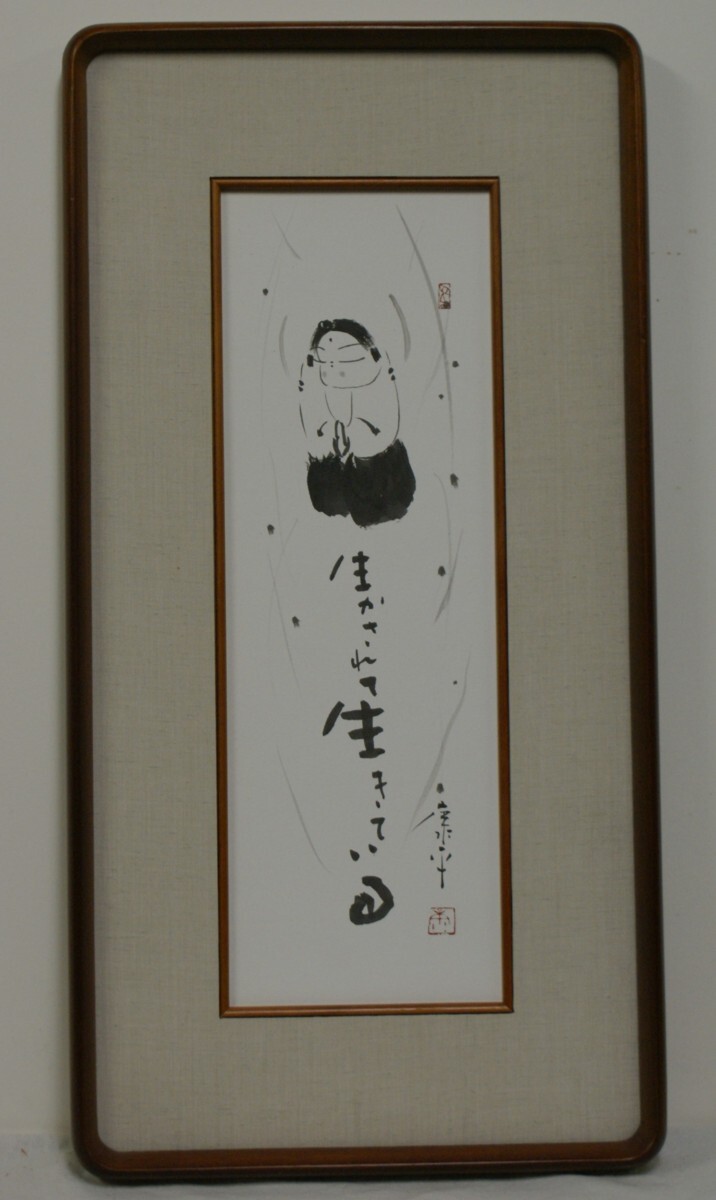 生かされて生きている
康平